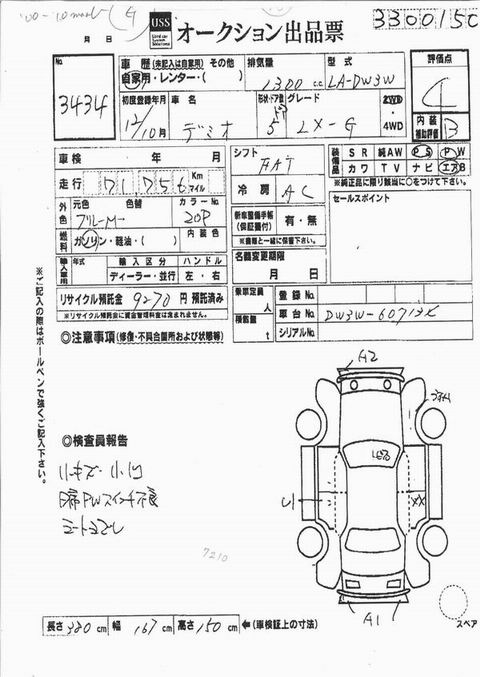 USS オークション出品票
月 日
No. 3434
車歴(未記入は自家用) その他
自家用・レンター・( )
排気量 1300 c.c.
型式 LA-DW3W
評価点
初度登録年月 12/10月
車名 デミオ
形状・ドア数 5
グレード LX-G
2WD・4WD
内装補助評価 B
車検 年 月
シフト FAT
装備品 SR 純AW PS PW
カワ TV ナビ エアB
※純正品に限り該当に○をつけて下さい。
走行 71756 Km マイル
冷房 AC
セールスポイント
外色 元色 色替 カラーNo.
ブルーM 20P
新車整備手帳(保証書付) 有・無
※書類と一緒に保管下さい。
燃料 ガソリン・軽油・( ) 内装色
名義変更期限
月 日
輸入車用 年式 輸入区分 ハンドル
ディーラー・並行 左・右
乗車定員 人
登録No.
リサイクル預託金 9270 円 預託済み
※リサイクル預託金に資金管理料金は含まれません。
積載量 t
車台No.
シリアルNo.
◎注意事項(修復・不具合箇所および状態等)
※ご記入の際はボールペンで強くご記入下さい。
A2
◎検査員報告
小キズ・小凹
XX
U
7210
A1
スペア
長さ 380 cm 幅 167 cm 高さ 150 cm ←(車検証上の寸法)